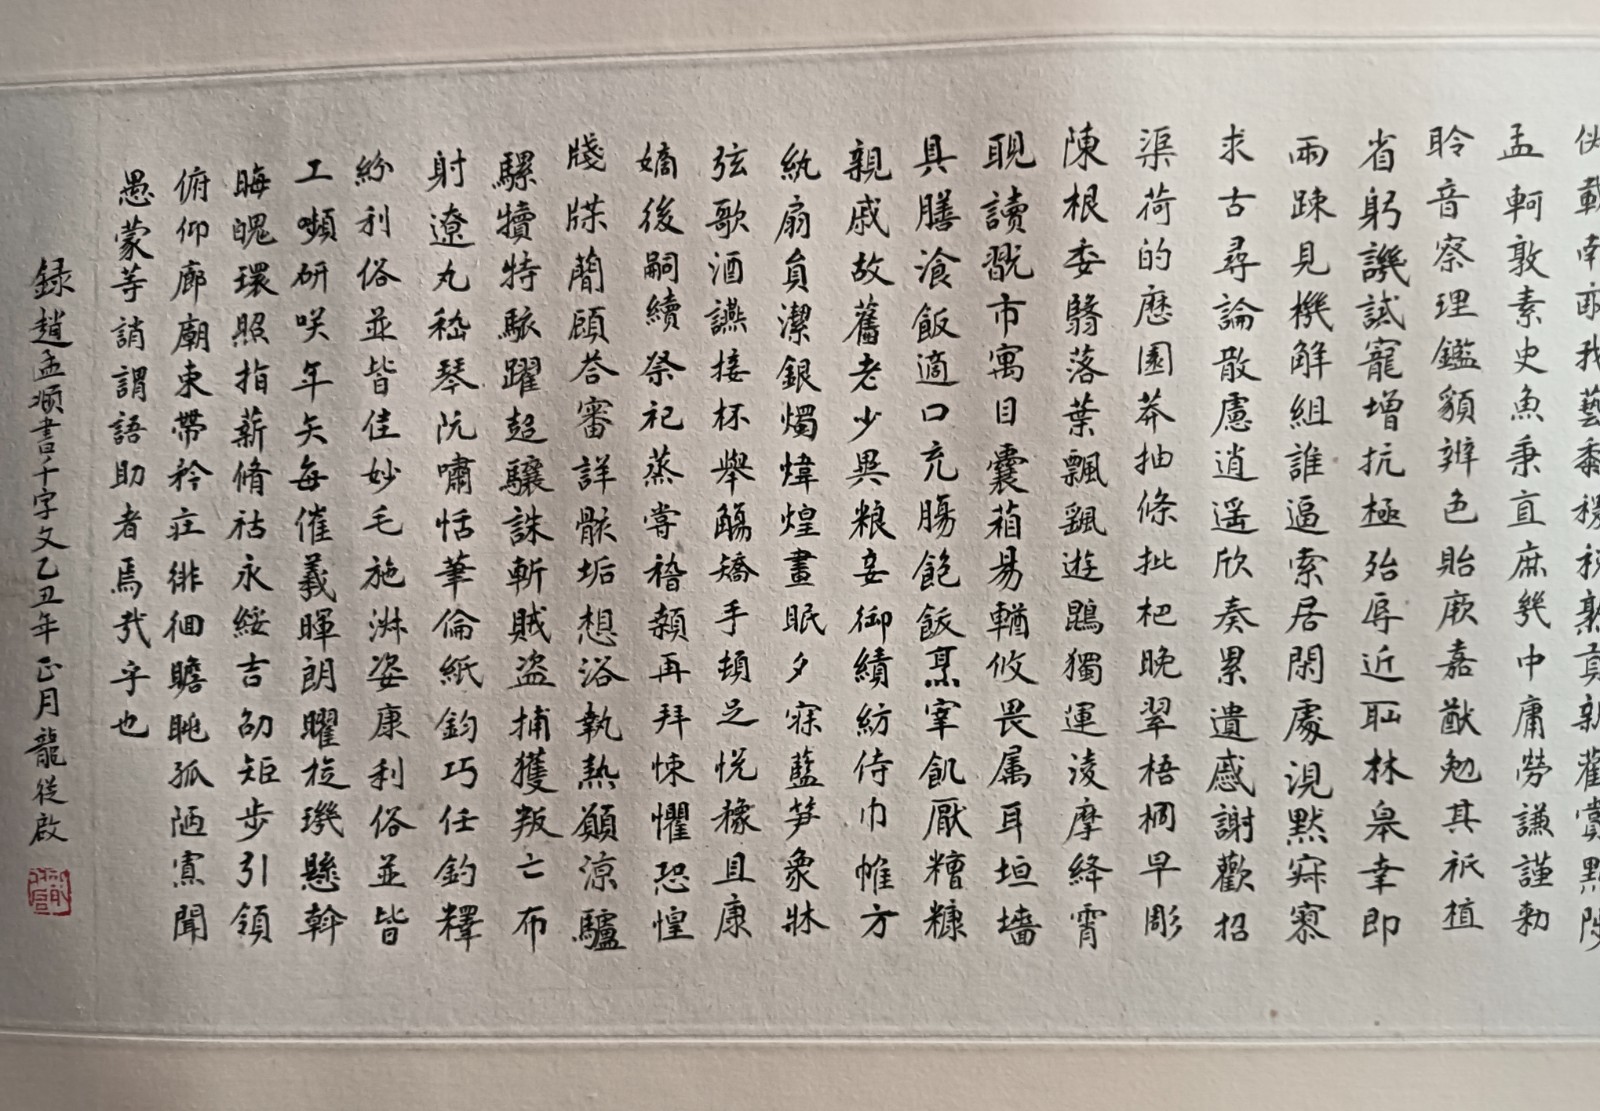 俶載南畝我藝黍稷稅熟貢新勸賞黜陟
孟軻敦素史魚秉直庶幾中庸勞謙謹勑
聆音察理鑑貌辨色貽厥嘉猷勉其祇植
省躬譏誡寵增抗極殆辱近恥林皋幸即
兩疎見機解組誰逼索居閑處沉默寂寥
求古尋論散慮逍遥欣奏累遣慼謝歡招
渠荷的歷園莽抽條批杷晚翠梧桐早彫
陳根委翳落葉飄颻遊鵾獨運淩摩絳霄
耽讀翫市寓目囊箱易輶攸畏属耳垣墻
具膳湌飯適口充腸飽飯烹宰飢厭糟糠
親戚故舊老少異粮妾御績紡侍巾帷方
紈扇員潔銀燭煒煌晝眠夕寐藍笋象牀
弦歌酒讌接杯舉觴矯手頓足悅豫且康
嫡後嗣續祭祀蒸嘗稽顙再拜悚懼恐惶
牋牒蕳顧荅審詳骸垢想浴執熱願涼驢
騾犢特駭躍超驤誅斬賊盜捕獲叛亡布
射遼丸嵇琴阮嘯恬筆倫紙鈞巧任釣釋
紛利俗並皆佳妙毛施淋姿康利俗並皆
工嚬研咲年矢每催羲暉朗曜旋璣懸斡
晦魄環照指薪脩祜永綏吉劭矩步引領
俯仰廊廟束帶矜莊徘徊瞻眺孤陋寡聞
愚蒙等誚謂語助者焉哉乎也
録趙孟頫書千字文乙丑年正月龍從啟